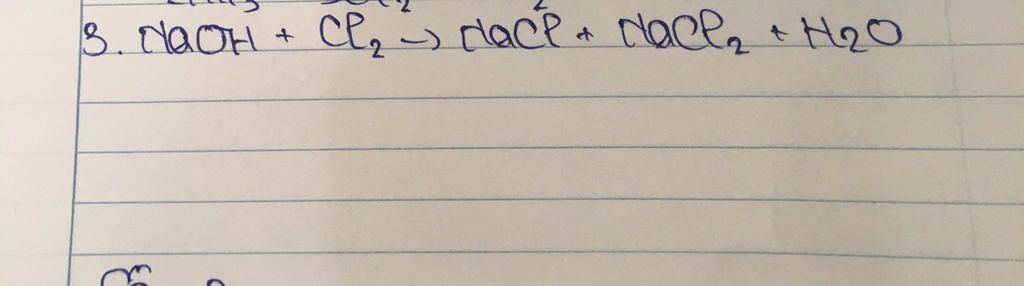 3. NaOH + Cl₂ → NaCl + NaCl₂ + H2O